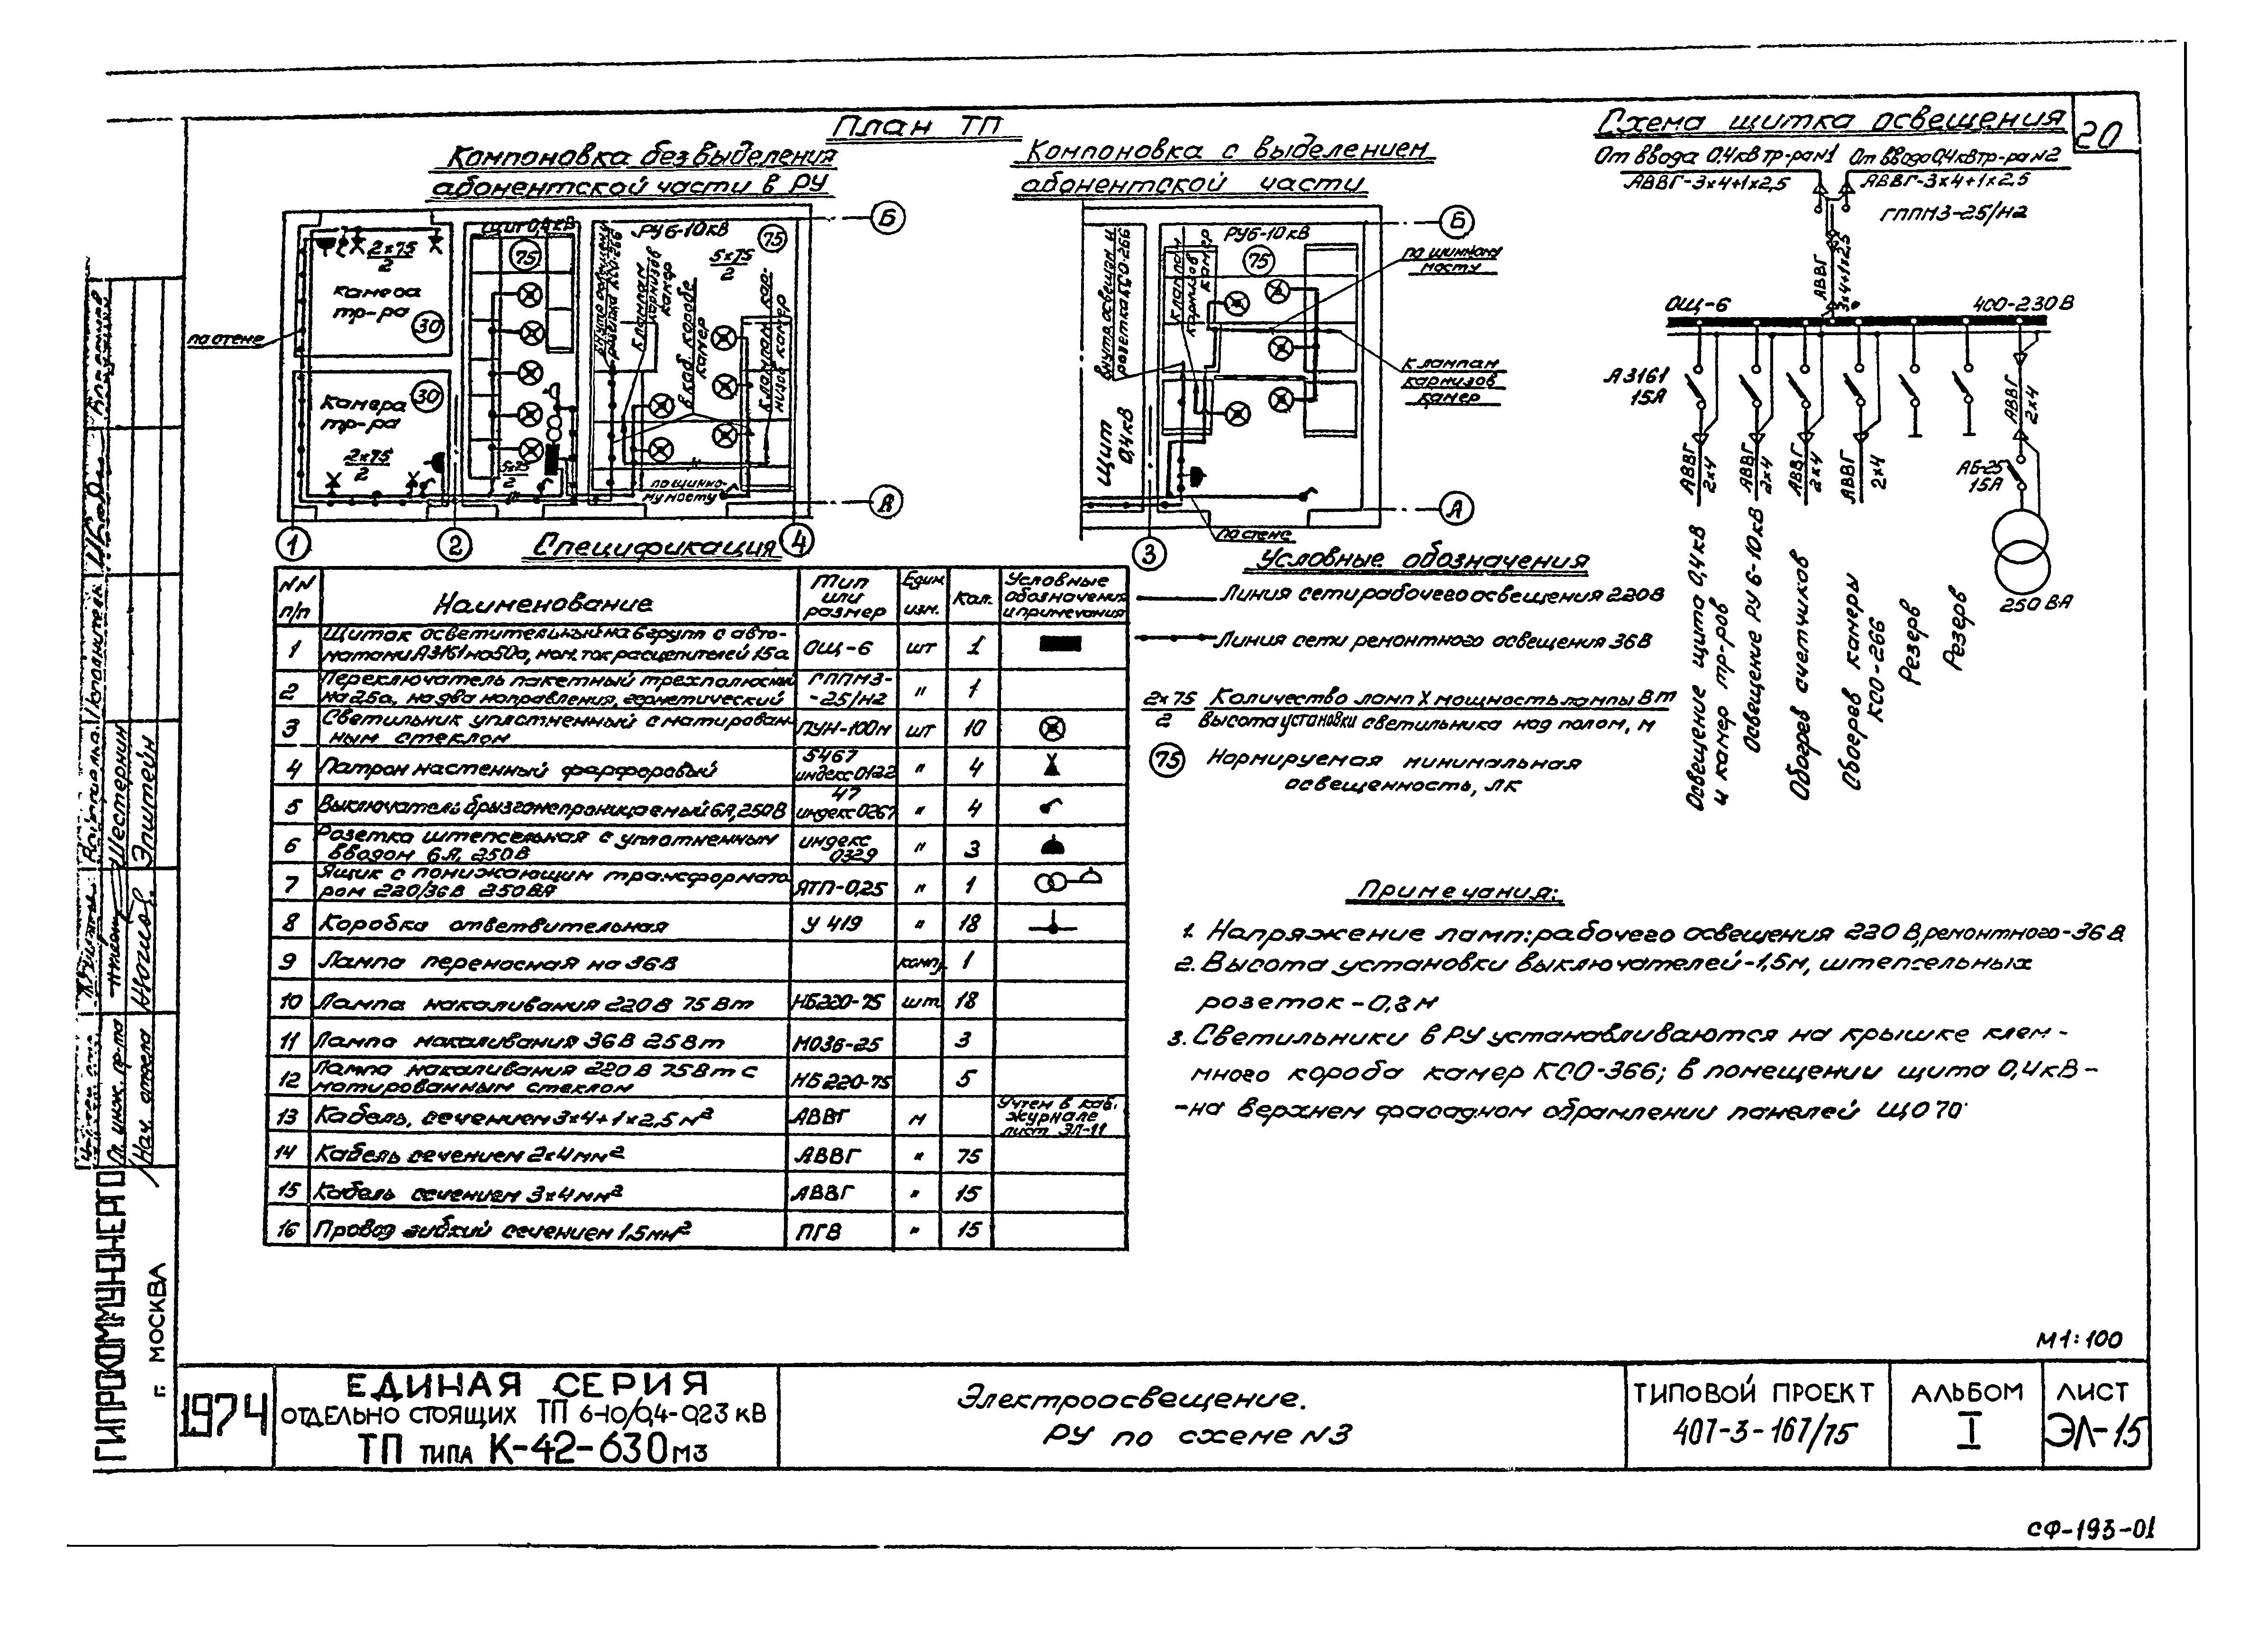 20
План ТП
Компоновка без выделения
абонентской части в РУ
Компоновка с выделением
абонентской части
Схема щитка освещения
От ввода 0.4кВ тр-ра№1
АВВГ-3х4+1х2,5
От ввода 0,4кВ тр-ра №2
АВВГ-3х4+1х2,5
ГППМ3-25/Н2
АВВГ
3х4+1х2,5
ОЩ-6
400-230В
А3161
15А
АВВГ
2х4
АВВГ
2х4
АВВГ
2х4
АВВГ
2х4
АВВГ
2х4
АБ-25
15А
250ВА
Освещение щита 0,4кВ
и камер тр-ров
Освещение РУ 6-10кВ
Обогрев счетчиков
Обогрев камеры
КСО-266
Резерв
Резерв
2х75
2
камера
тр-ра
30
по стене
Камера
тр-ра
30
2х75
2
щит 0,4кВ
75
5х75
2
РУ6-10кВ
75
5х75
2
К лампам
карнизов
камер
в каб. коробе
камер
К лампам кар-
низов камер
по шинно-
му мосту
Б
А
1
2
4
Щит
0,4кВ
внутр. освещен. и
розетка КСО-266
К лампам
карнизов
камер
РУ6-10кВ
75
по шинному
мосту
К лампам
карнизов
камер
по стене
Б
А
3
Спецификация
№№ п/п
Наименование
Тип или размер
Един. изм.
Кол.
Условные обозначения и примечания
1 Щиток осветительный на 6 групп с авто-
матами А3161 на 50а, ном. ток расцепителей 15а ОЩ-6 шт 1
2 Переключатель пакетный трехполюсный
на 25а, на два направления, герметический ГППМ3--25/Н2 " 1
3 Светильник уплотненный с матирован-
ным стеклом ПУН-100м шт 10
4 Патрон настенный фарфоровый 5467 индекс 0122 " 4
5 Выключатель брызгонепроницаемый 6А, 250В 47 индекс 0267 " 4
6 Розетка штепсельная с уплотненным
вводом 6А, 250В индекс 0329 " 3
7 Ящик с понижающим трансформато
ром 220/36В 250ВА ЯТП-0,25 " 1
8 Коробка ответвительная У 419 " 18
9 Лампа переносная на 36В комп. 1
10 Лампа накаливания 220В 75Вт НБ220-75 шт 18
11 Лампа накаливания 36В 25Вт МО36-25 3
12 Лампа накаливания 220В 75Вт с
матированным стеклом НБ220-75 5
13 Кабель, сечением 3х4+1х2,5м² АВВГ м Учтен в каб. журнале лист ЭЛ-11
14 Кабель сечением 2х4мм² АВВГ " 75
15 Кабель сечением 3х4мм² АВВГ " 15
16 Провод гибкий сечением 1,5мм² ПГВ " 15
Условные обозначения
Линия сети рабочего освещения 220В
Линия сети ремонтного освещения 36В
2х75 Количество ламп Х мощность лампы Вт
2 высота установки светильника над полом, м
75 Нормируемая минимальная
освещенность, лк
Примечания:
1. Напряжение ламп: рабочего освещения 220В, ремонтного-36В
2. Высота установки выключателей-1,5м, штепсельных
розеток-0,8м
3. Светильники в РУ устанавливаются на крышке клем-
много короба камер КСО-366; в помещении щита 0,4кВ-
-на верхнем фасадном обрамлении панелей ЩО70
М1:100
Шестернин
Эпштейн
Гл. инж. пр-та
Нач. отдела
ГИПРОКОММУНЭНЕРГО
г. МОСКВА
1974
ЕДИНАЯ СЕРИЯ
ОТДЕЛЬНО СТОЯЩИХ ТП 6-10/0,4-0,23 кВ
ТП ТИПА К-42-630М3
Электроосвещение.
РУ по схеме №3
ТИПОВОЙ ПРОЕКТ
407-3-167/75
АЛЬБОМ
I
ЛИСТ
ЭЛ-15
СФ-193-01